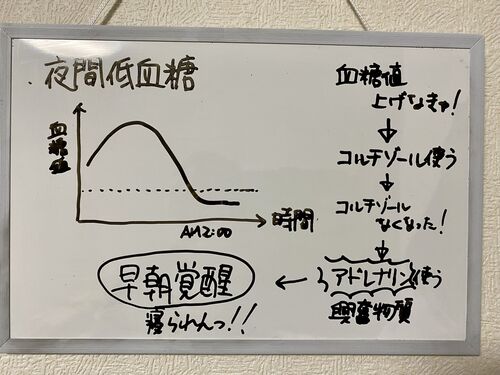 夜間低血糖
血糖値
時間
AM2:00
血糖値
上げなきゃ!
コルチゾール使う
コルチゾール
なくなった!
アドレナリン使う
興奮物質
早朝覚醒
寝られんっ!!